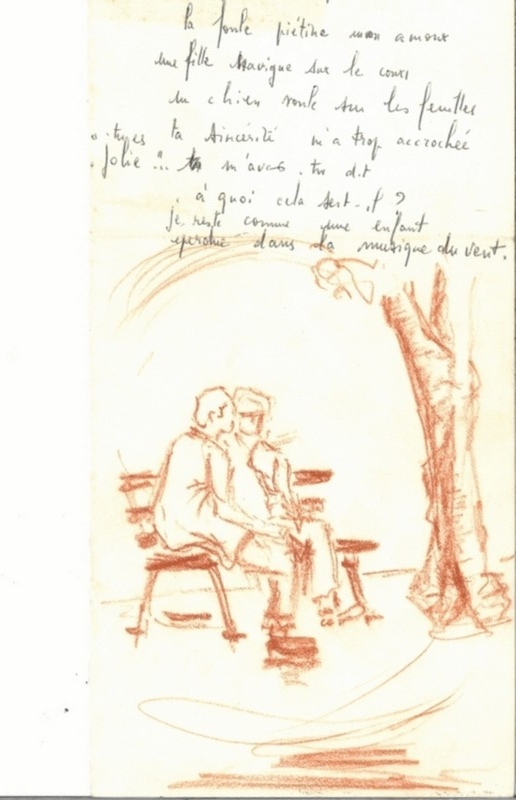 la foule piétine mon amour
une fille navigue sur le cours
un chien roule sur les feuilles
ta sincérité m'a trop accrochée
tu es jolie ... m'avais-tu dit
à quoi cela sert-il ?
je reste comme une enfant
dans la musique du vent.